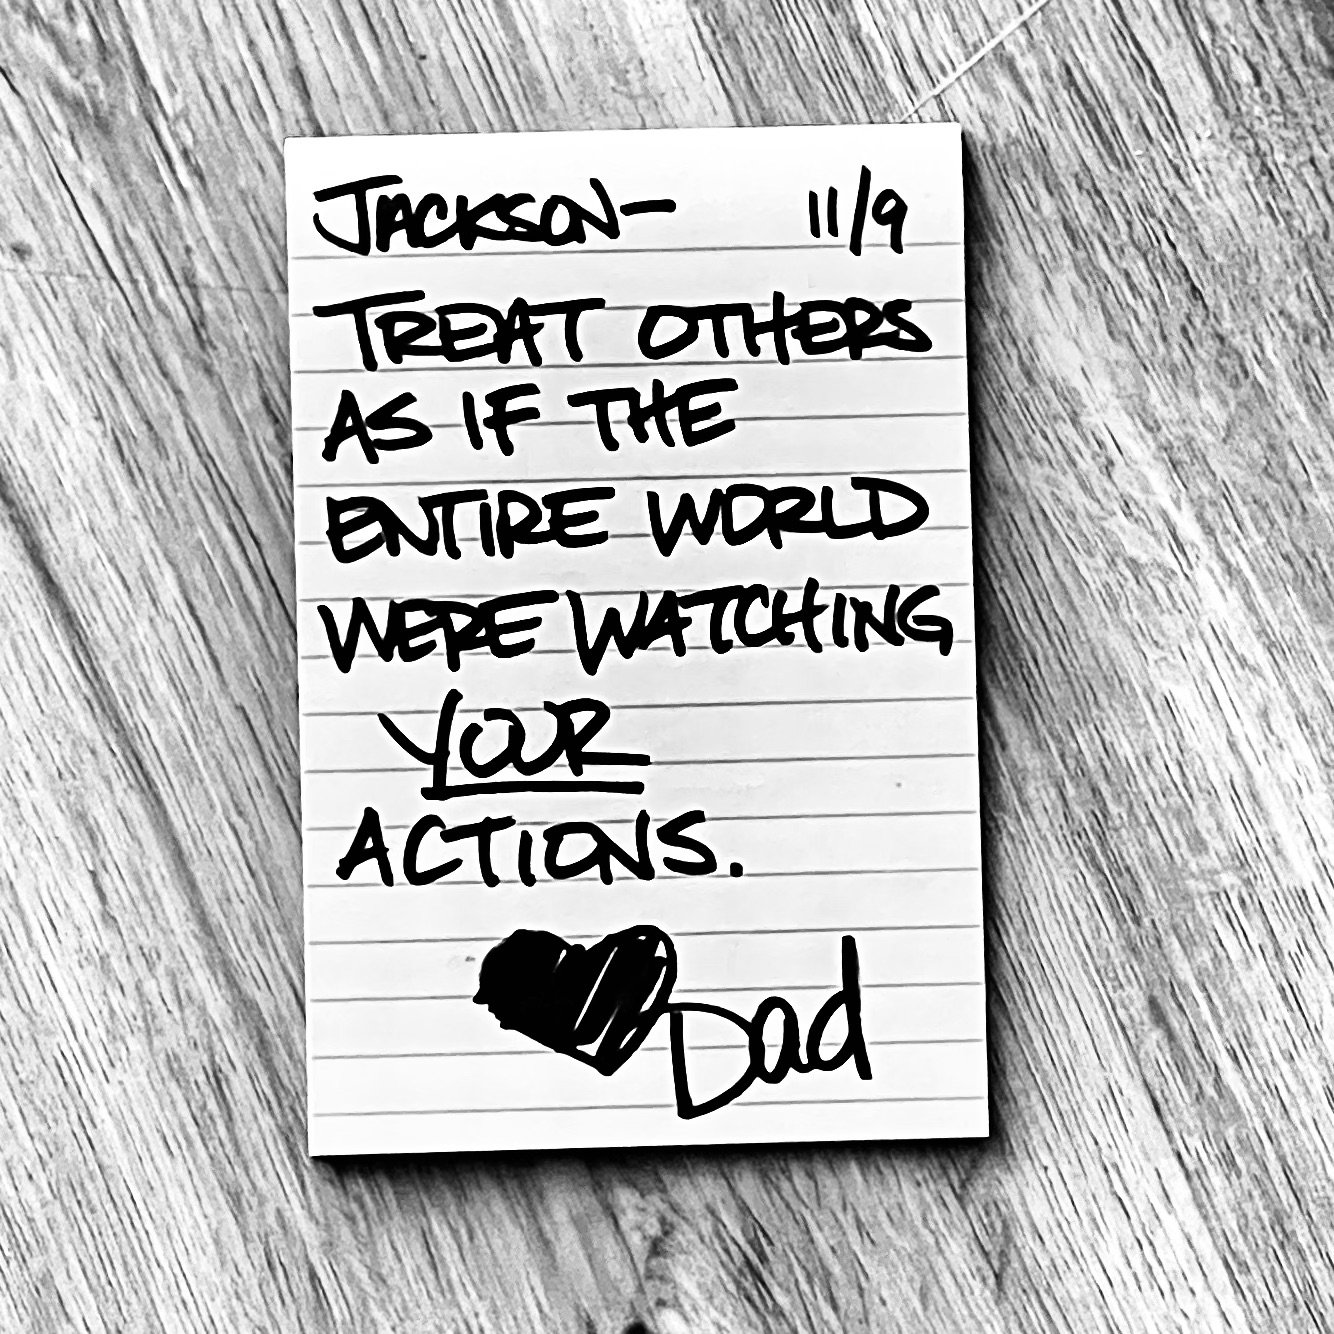 JACKSON— 11/9
TREAT OTHERS
AS IF THE
ENTIRE WORLD
WERE WATCHING
YOUR
ACTIONS.
Dad